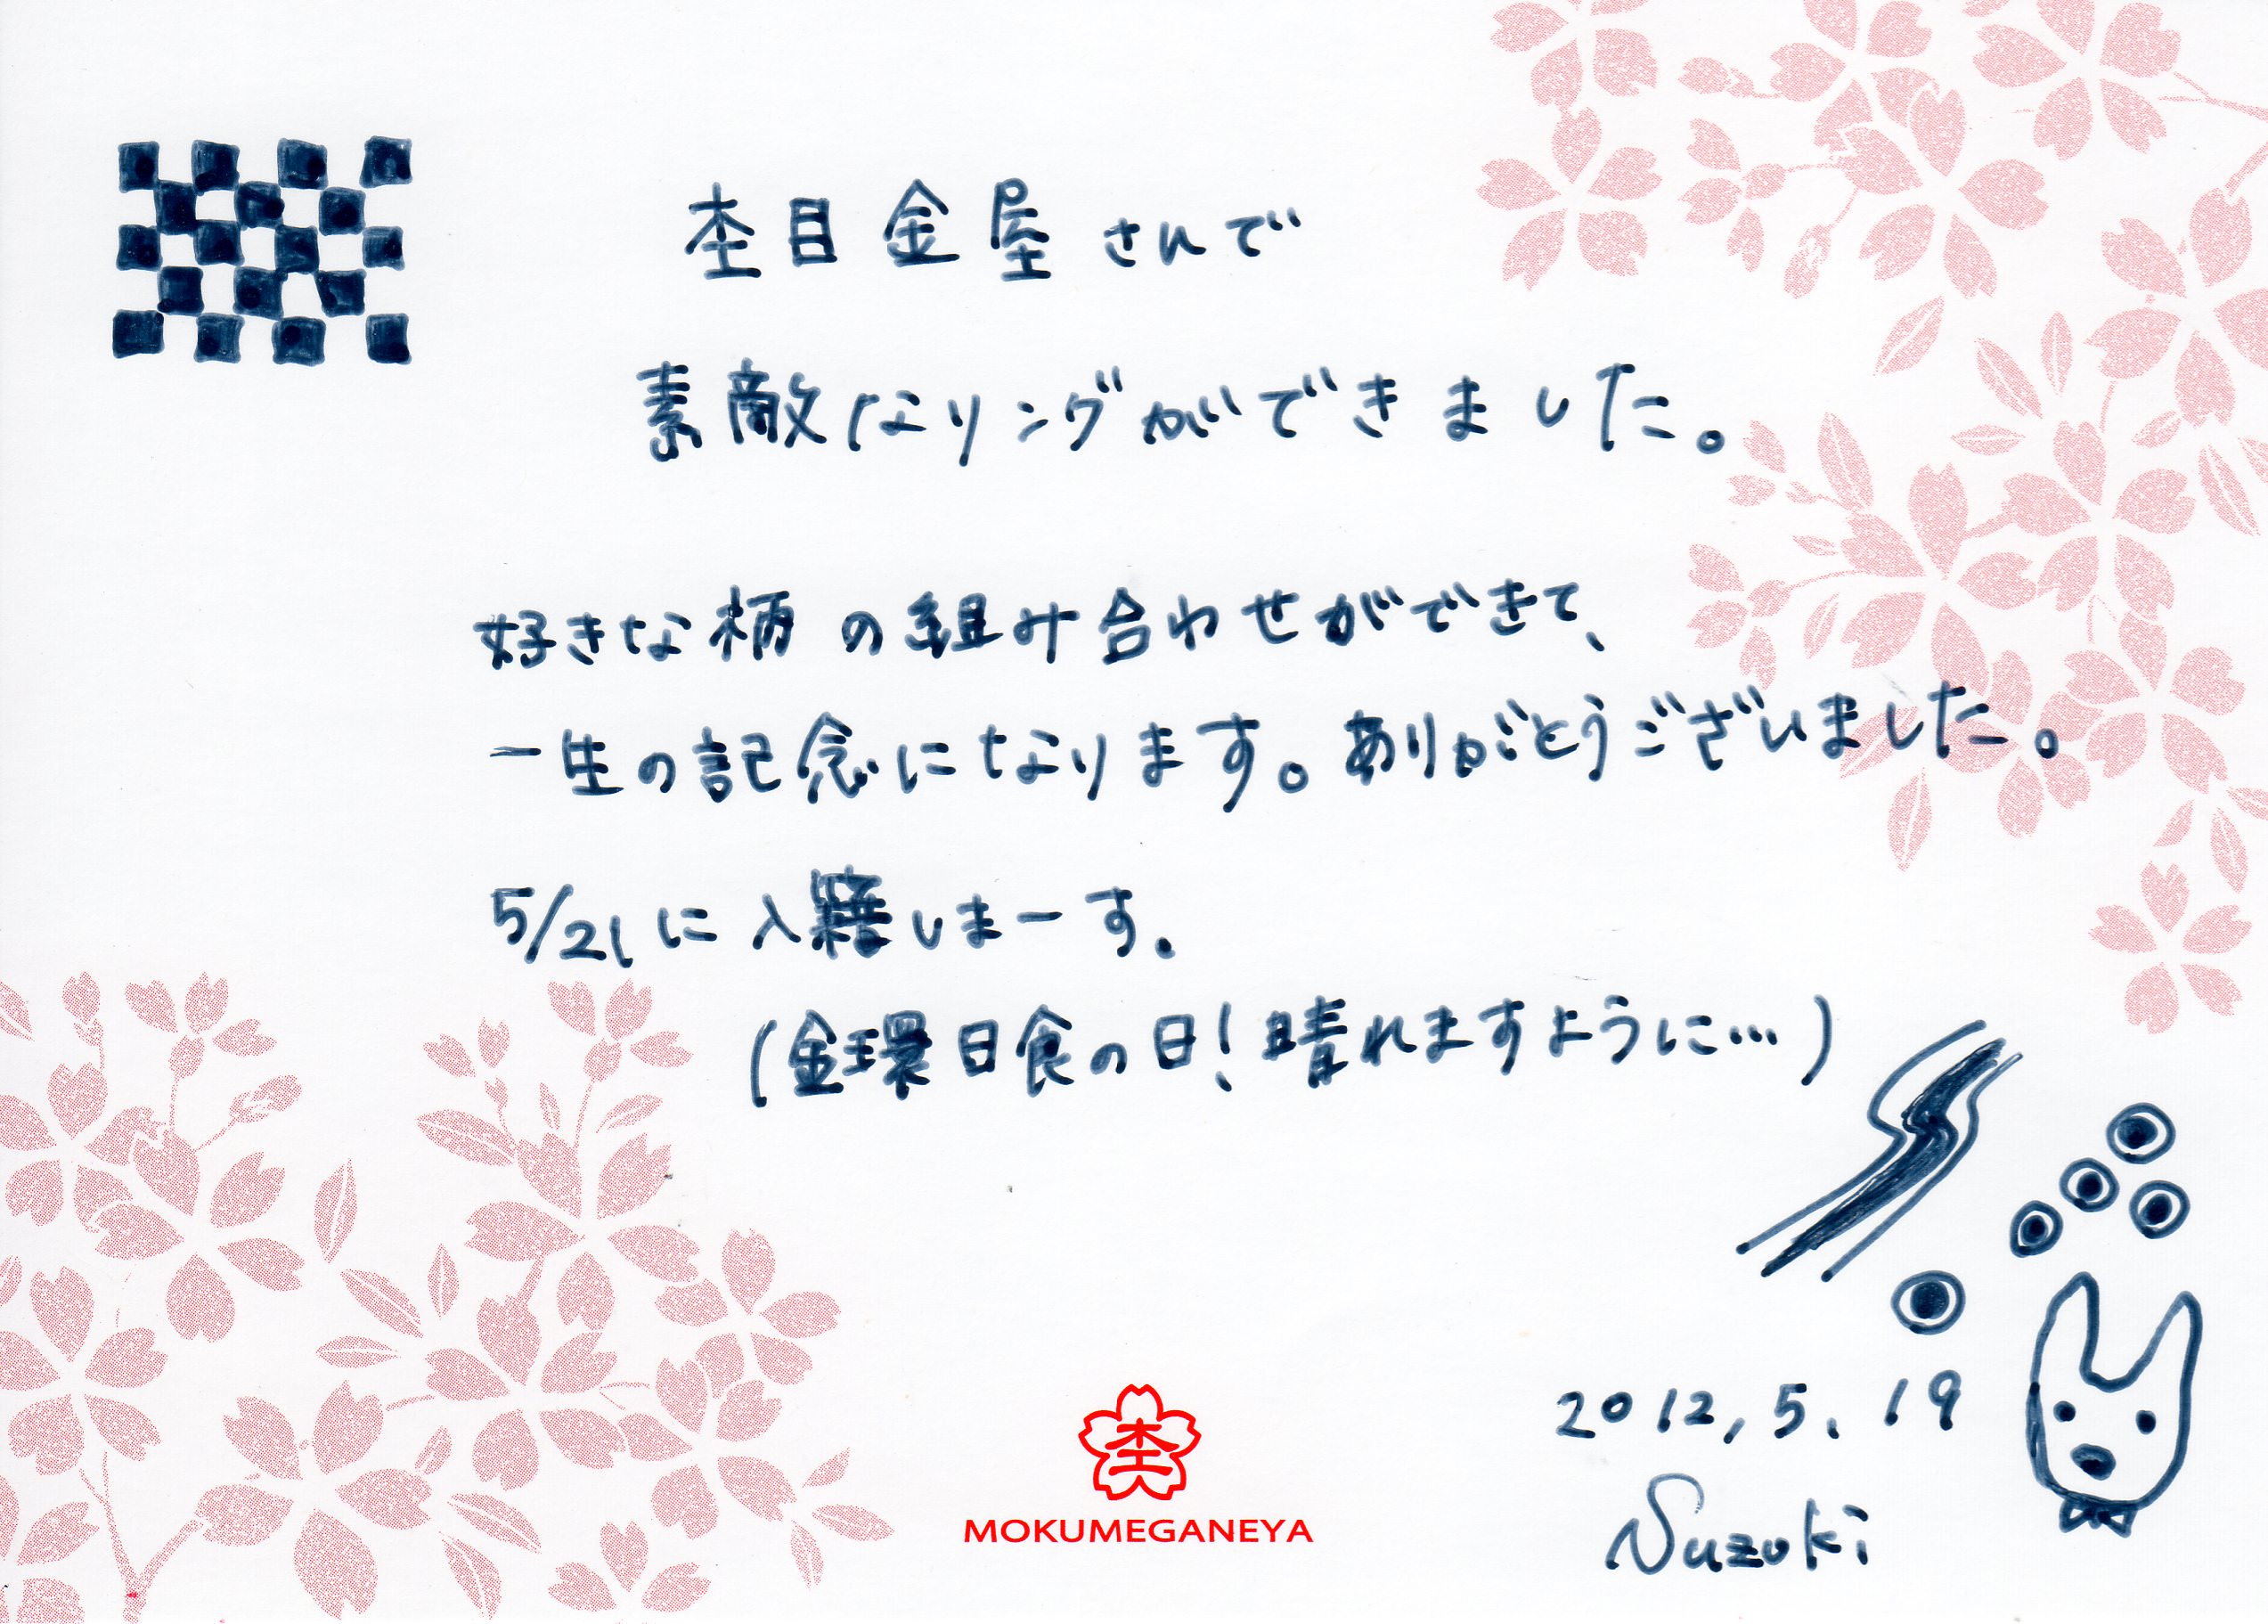 杢目金屋さんで
素敵なリングができました。
好きな柄の組み合わせができて、
一生の記念になります。ありがとうございました。
5/21に入籍しまーす.
(金環日食の日!晴れますように…)
2012,5.19
Suzuki
杢
MOKUMEGANEYA